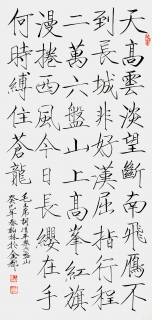 天高雲淡望斷南飛鴈不
到長城非好漢屈指行程
二萬六盤山上高峯紅旗
漫捲西風今日長纓在手
何時縛住蒼龍
毛主席詞清平樂六盤山
癸巳年春